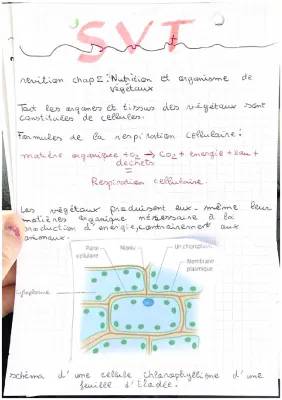 SVT
révision chap II: Nutrition et organisme de
végétaux
Tout les organes et tissus des végétaux sont
constituées de cellules.
Formules de la respiration cellulaire:
matière organique + O2 → CO2 + énergie + eau +
déchets
=
Respiration cellulaire.
Les végétaux produisent eux-même leur
matières organique nécessaire à la
production d'énergie, contrairement aux
animaux.
Paroi cellulaire
Noyau
Un chloroplaste
Membrane plasmique
cytoplasme
schéma d'une cellule chlorophyllienne d'une
feuille d'Elodée.